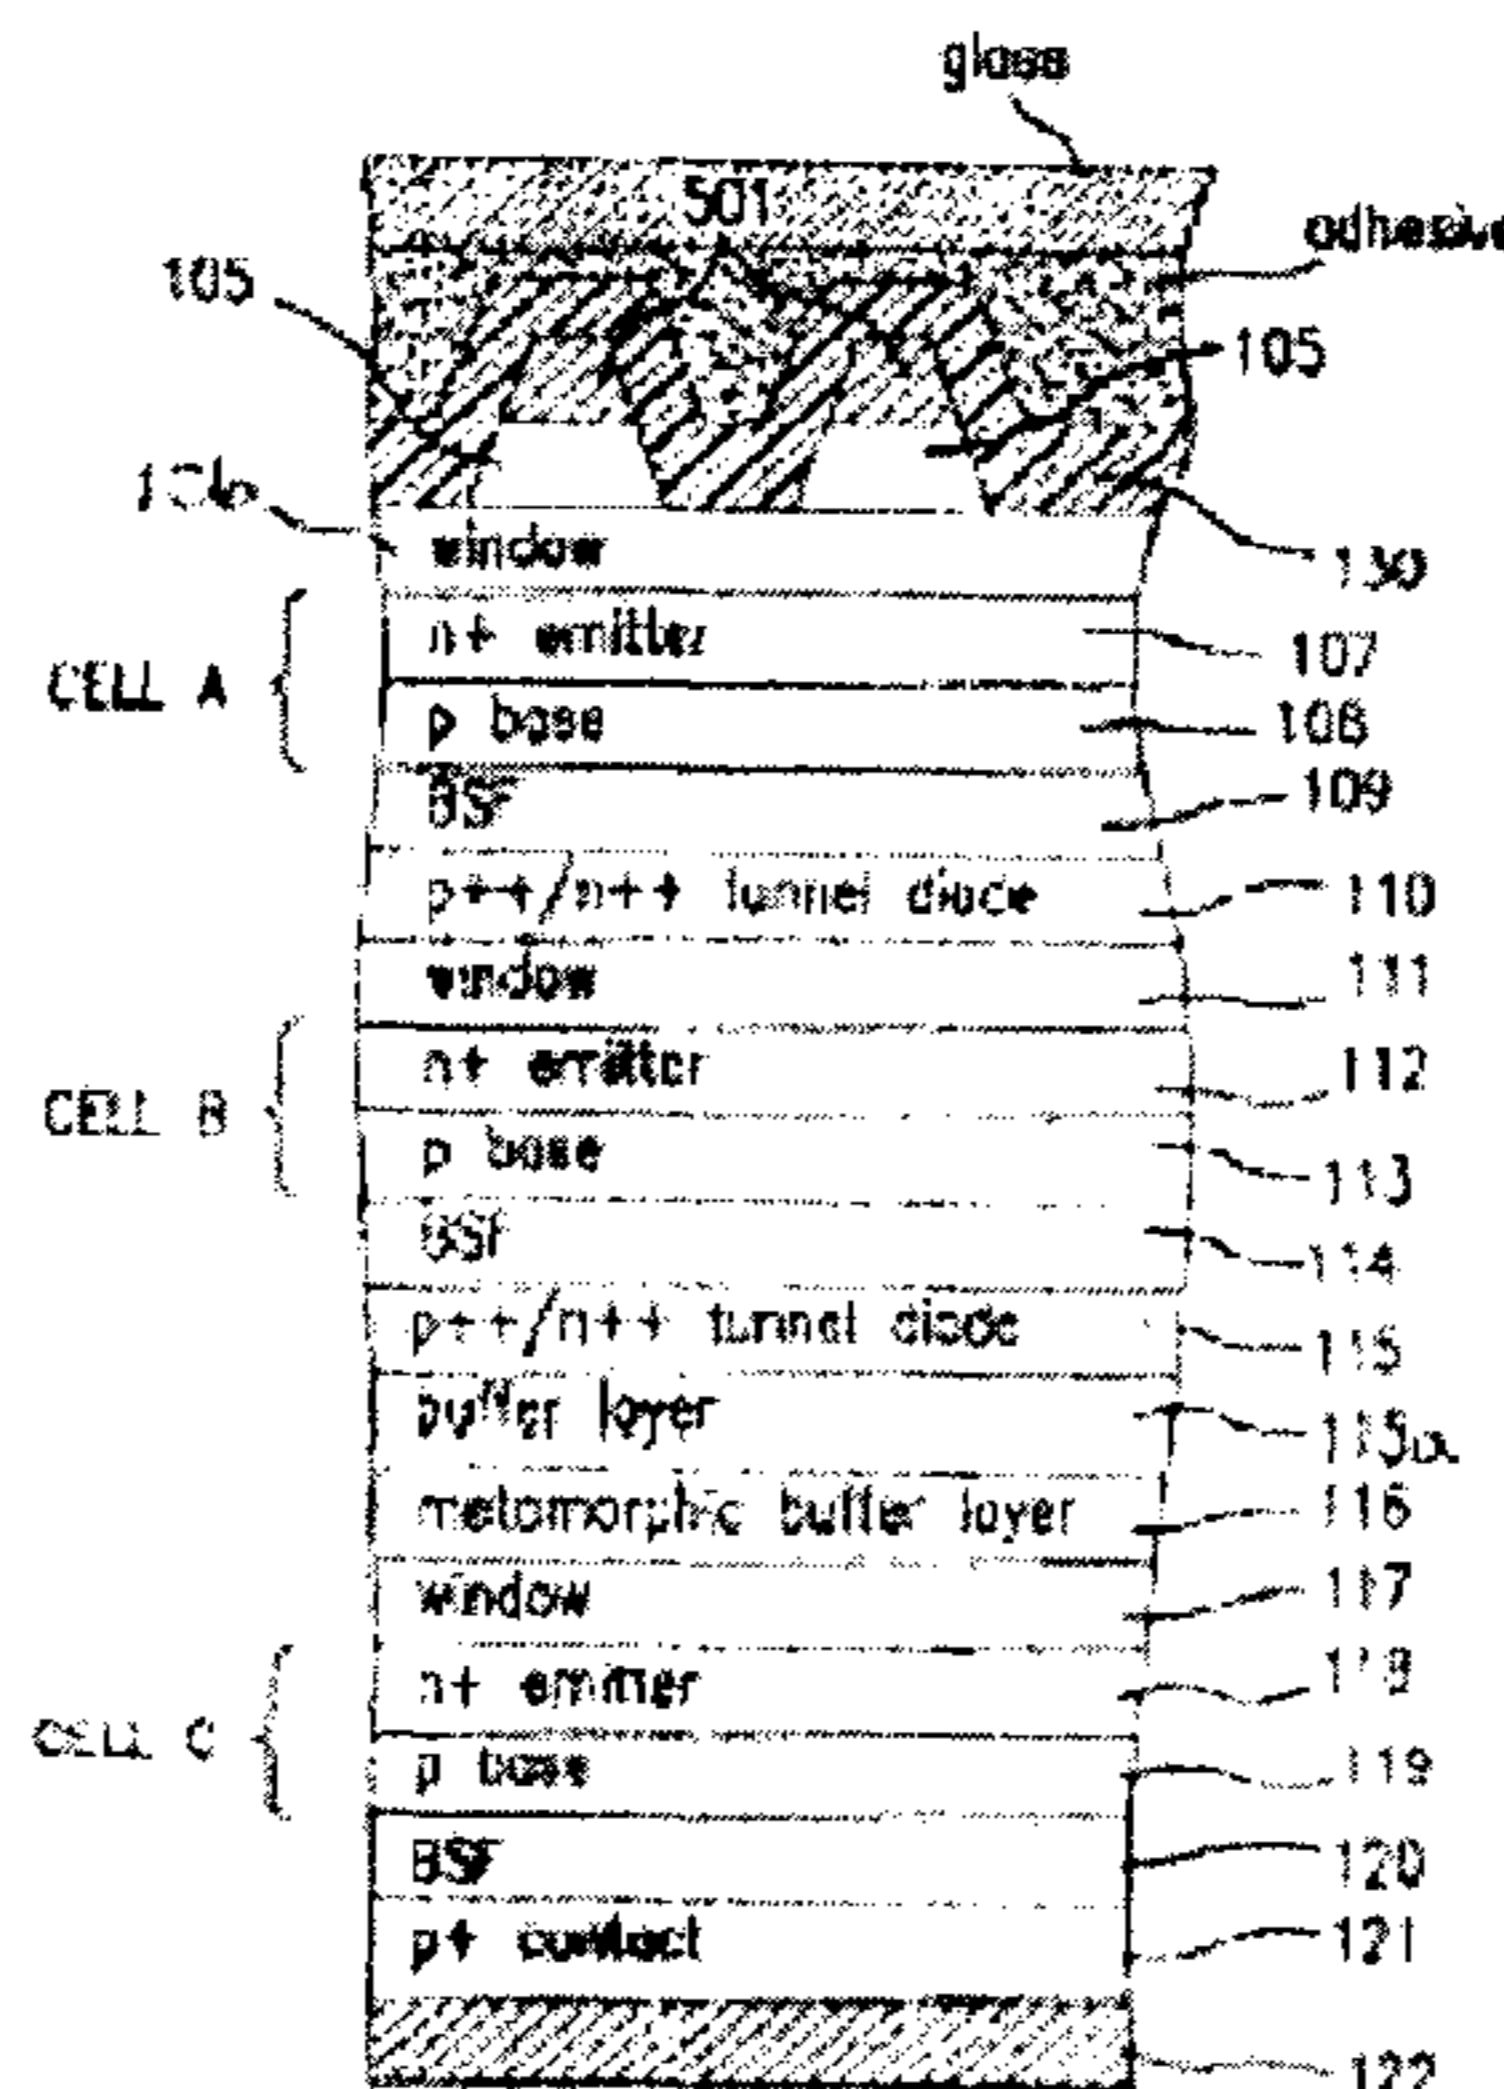 glass
501
adhesive
105
105
window
130
CELL A
n+ emitter
107
p base
108
BSF
109
p++/n++ tunnel diode
110
window
111
CELL B
n+ emitter
112
p base
113
BSF
114
p++/n++ tunnel diode
115
buffer layer
115a
metamorphic buffer layer
116
window
117
CELL C
n+ emitter
118
p base
119
BSF
120
p+ contact
121
122